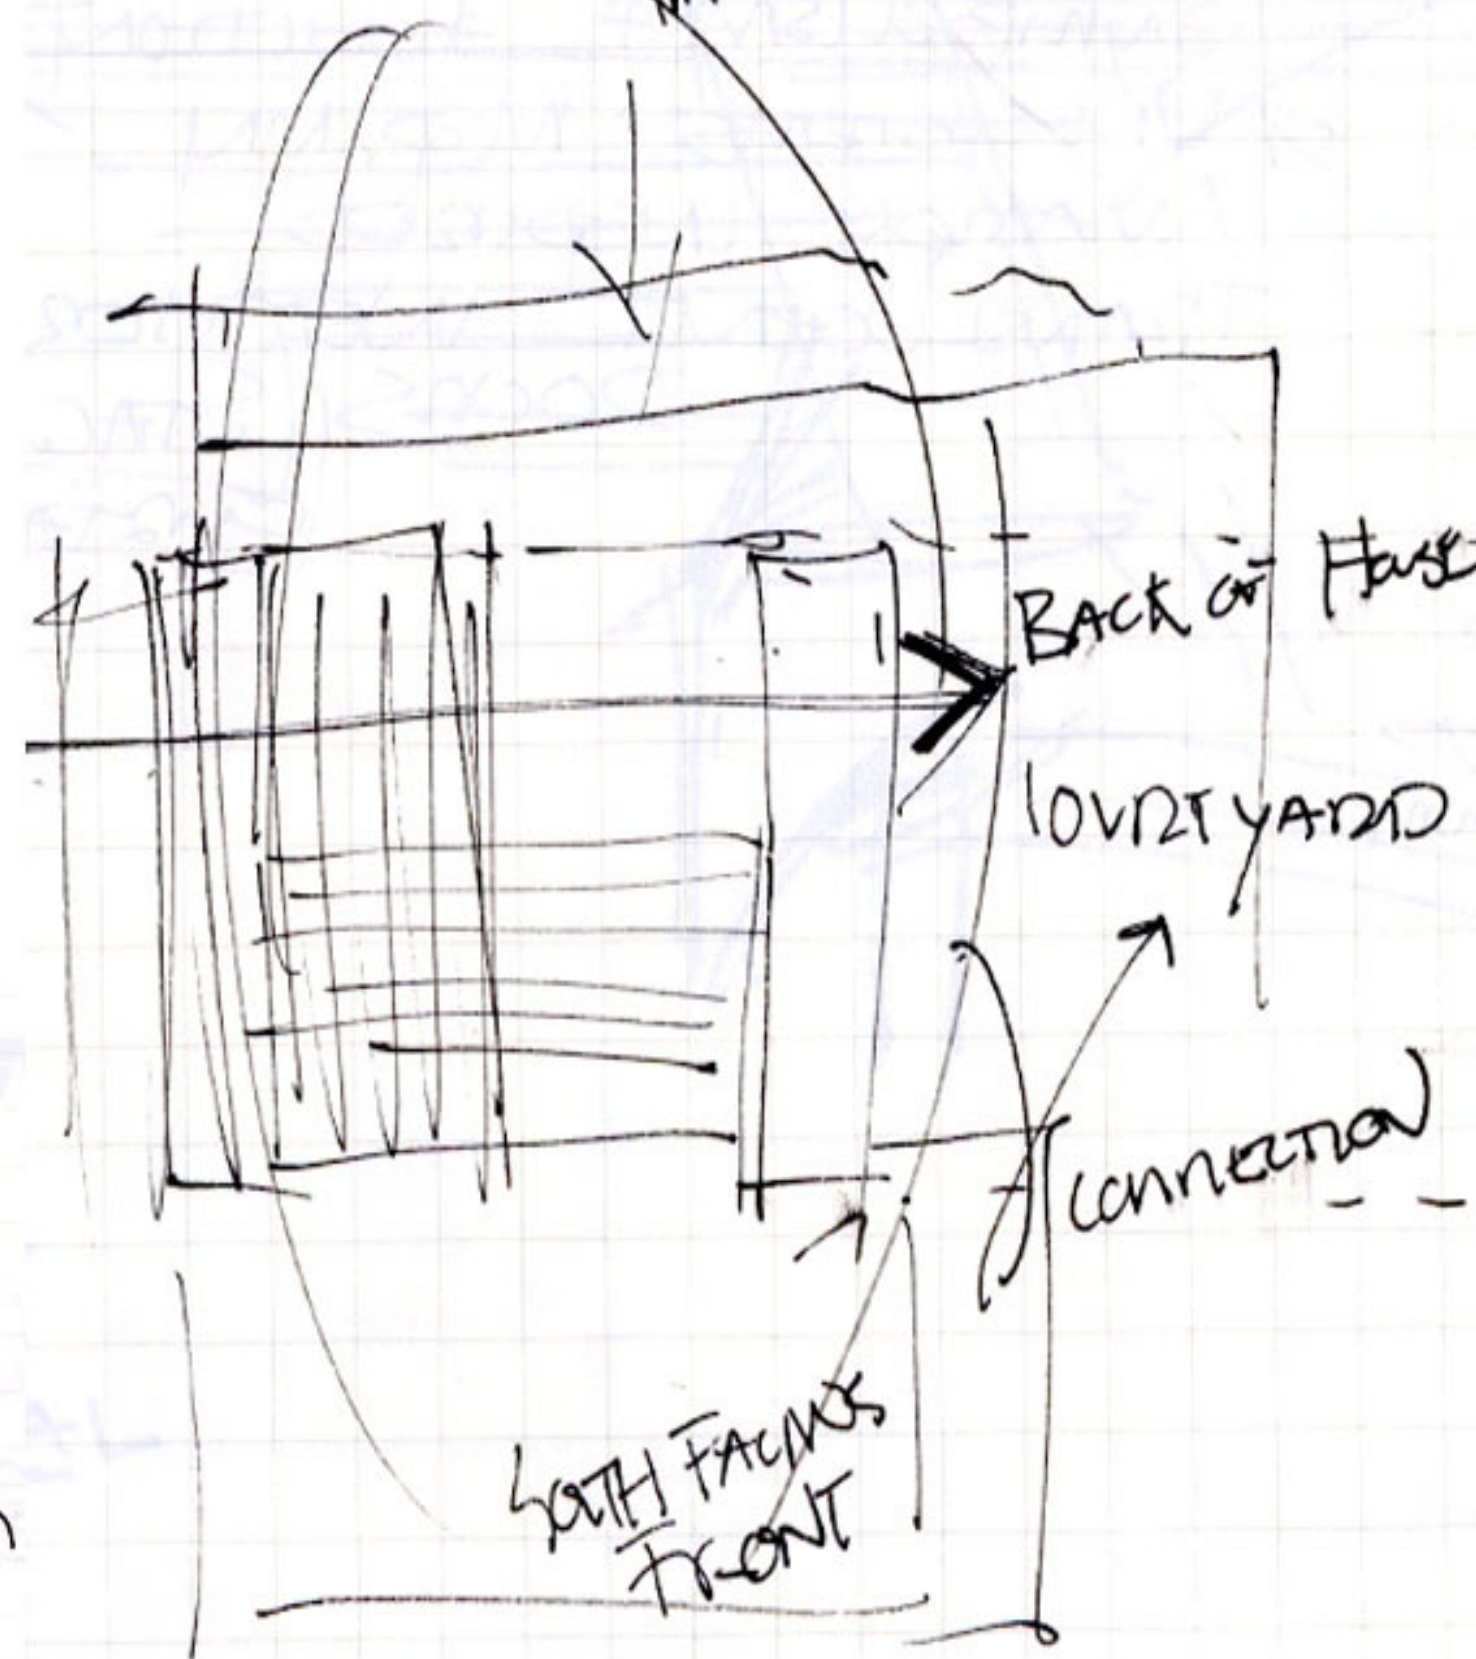 BACK OF HOUSE
COURTYARD
CONNECTION
SOUTH FACING
FRONT